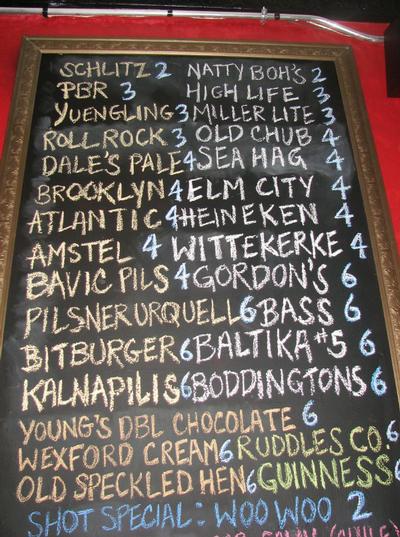 SCHLITZ 2 NATTY BOH'S 2
PBR 3 HIGH LIFE 3
YUENGLING 3 MILLER LITE 3
ROLL ROCK 3 OLD CHUB 4
DALE'S PALE 4 SEA HAG 4
BROOKLYN 4 ELM CITY 4
ATLANTIC 4 HEINEKEN 4
AMSTEL 4 WITTEKERKE 4
BAVIC PILS 4 GORDON'S 6
PILSNER URQUELL 6 BASS 6
BITBURGER 6 BALTIKA #5 6
KALNAPILIS 6 BODDINGTONS 6
YOUNG'S DBL CHOCOLATE 6
WEXFORD CREAM 6 RUDDLES CO. 6
OLD SPECKLED HEN 6 GUINNESS 6
SHOT SPECIAL: WOO WOO 2